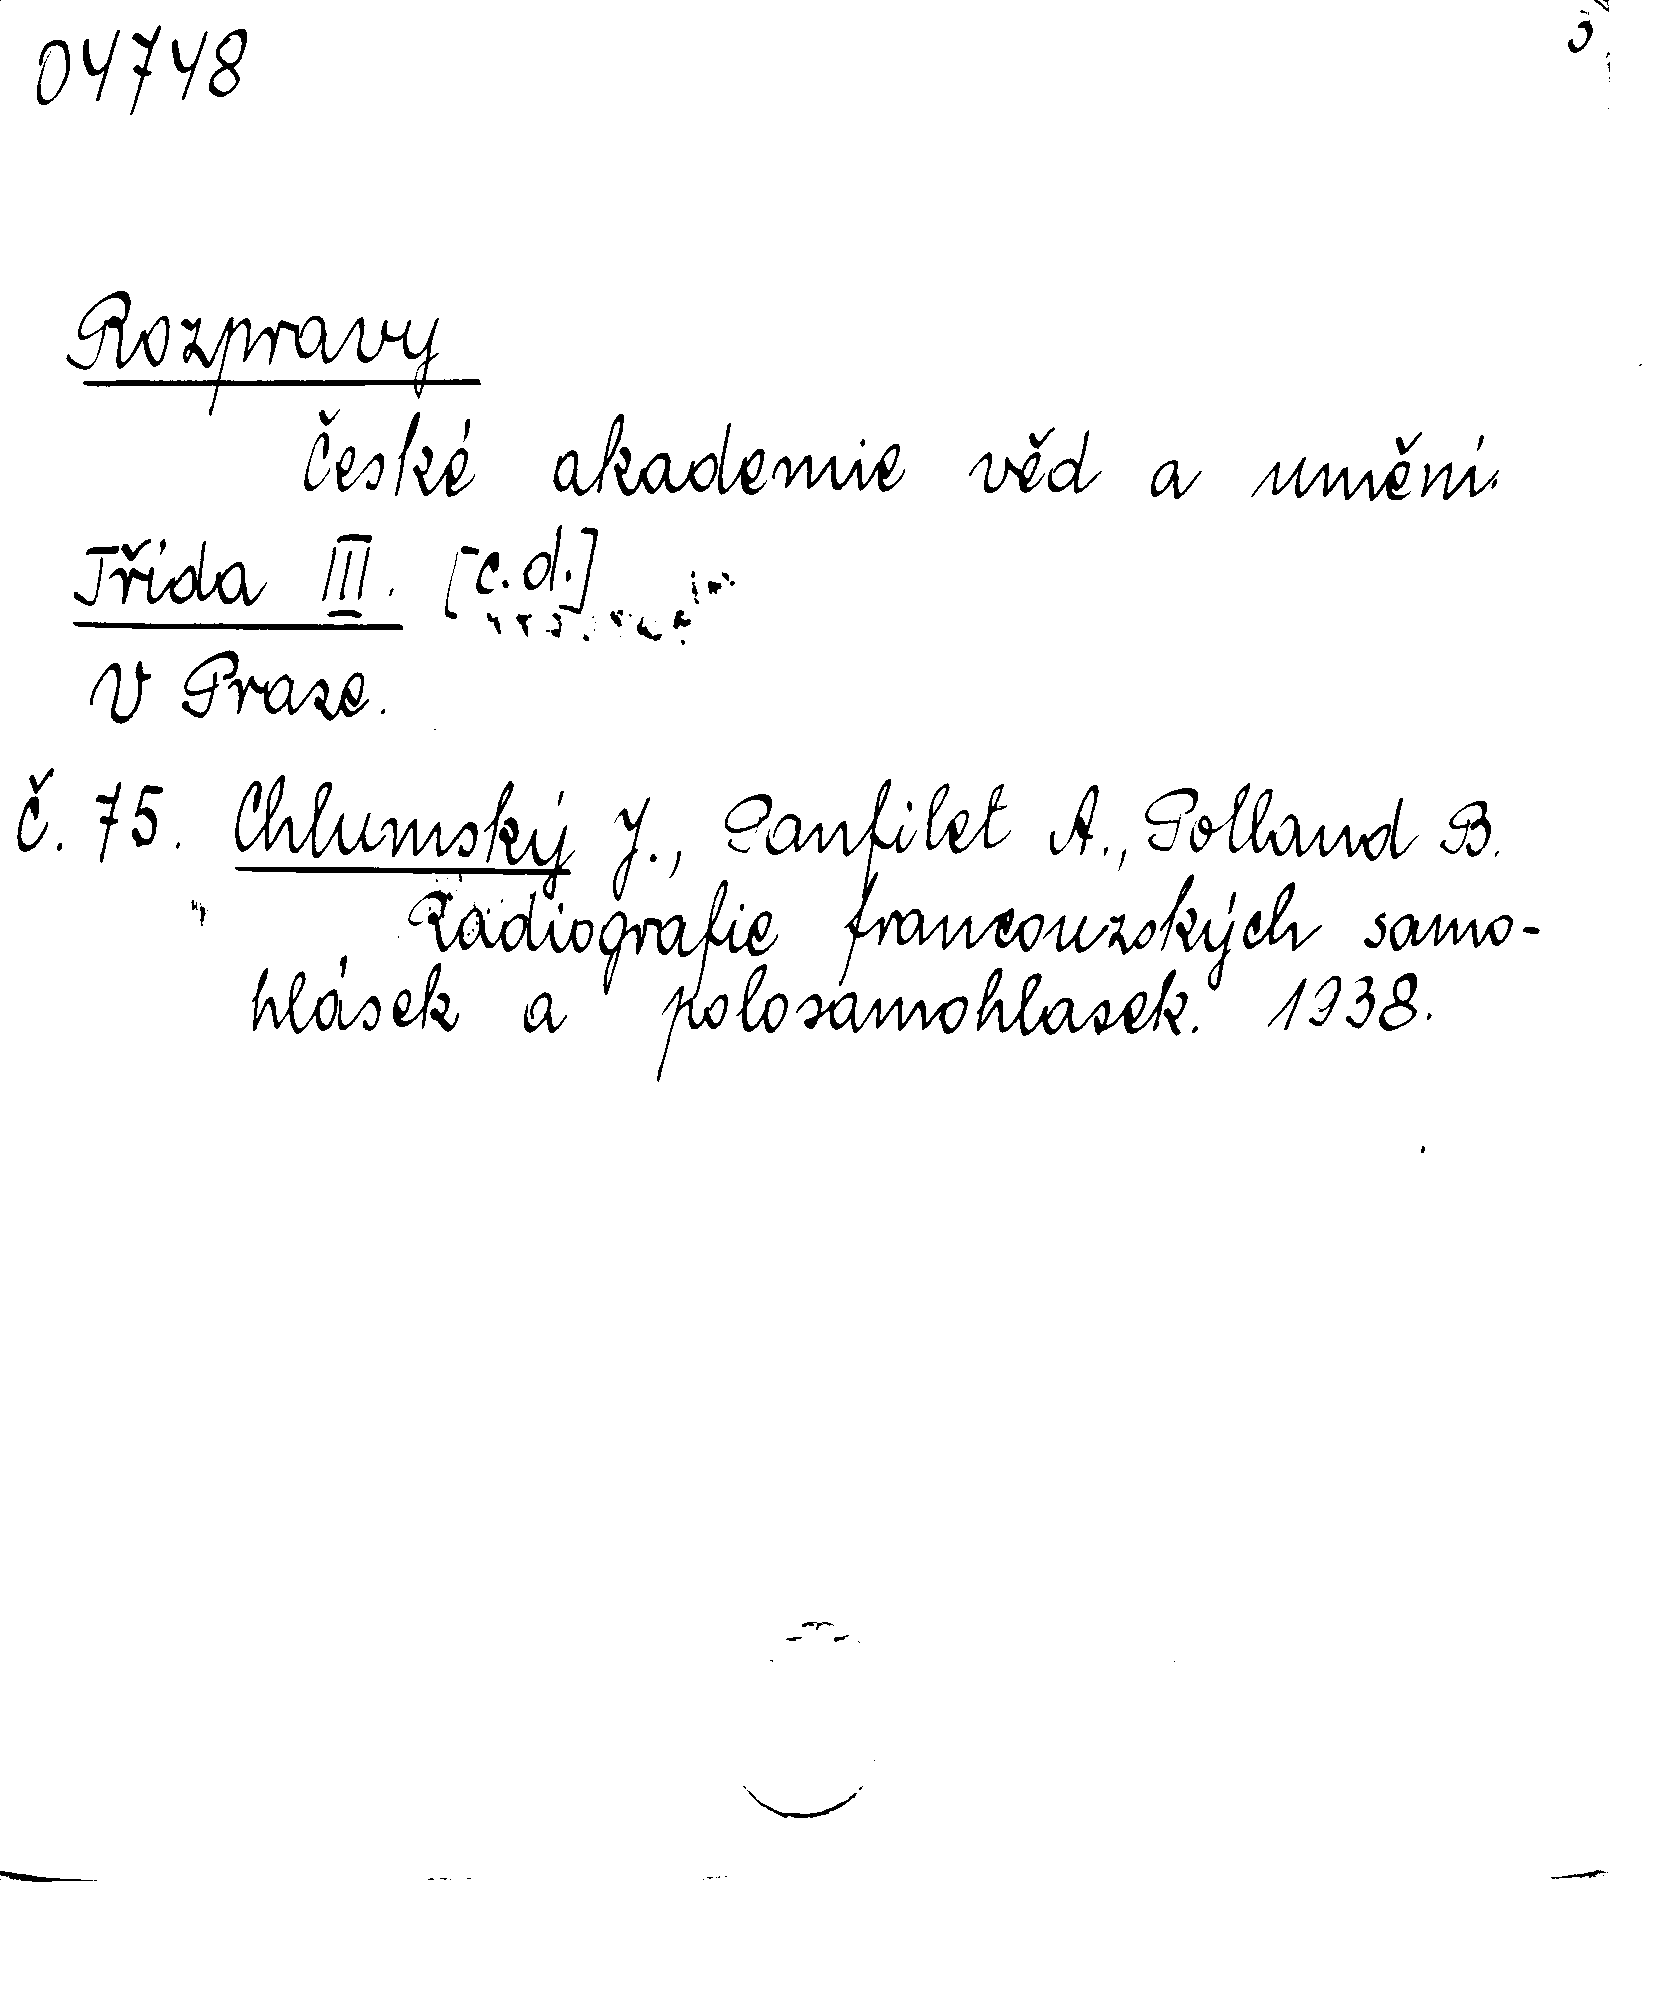 04748
Rozpravy
České akademie věd a umění.
Třída III. [c.d.]
V Praze.
č. 75. Chlumský J., Panfilet A., Polland B.
Radiografie francouzských samo-
hlásek a polosamohlasek. 1938.